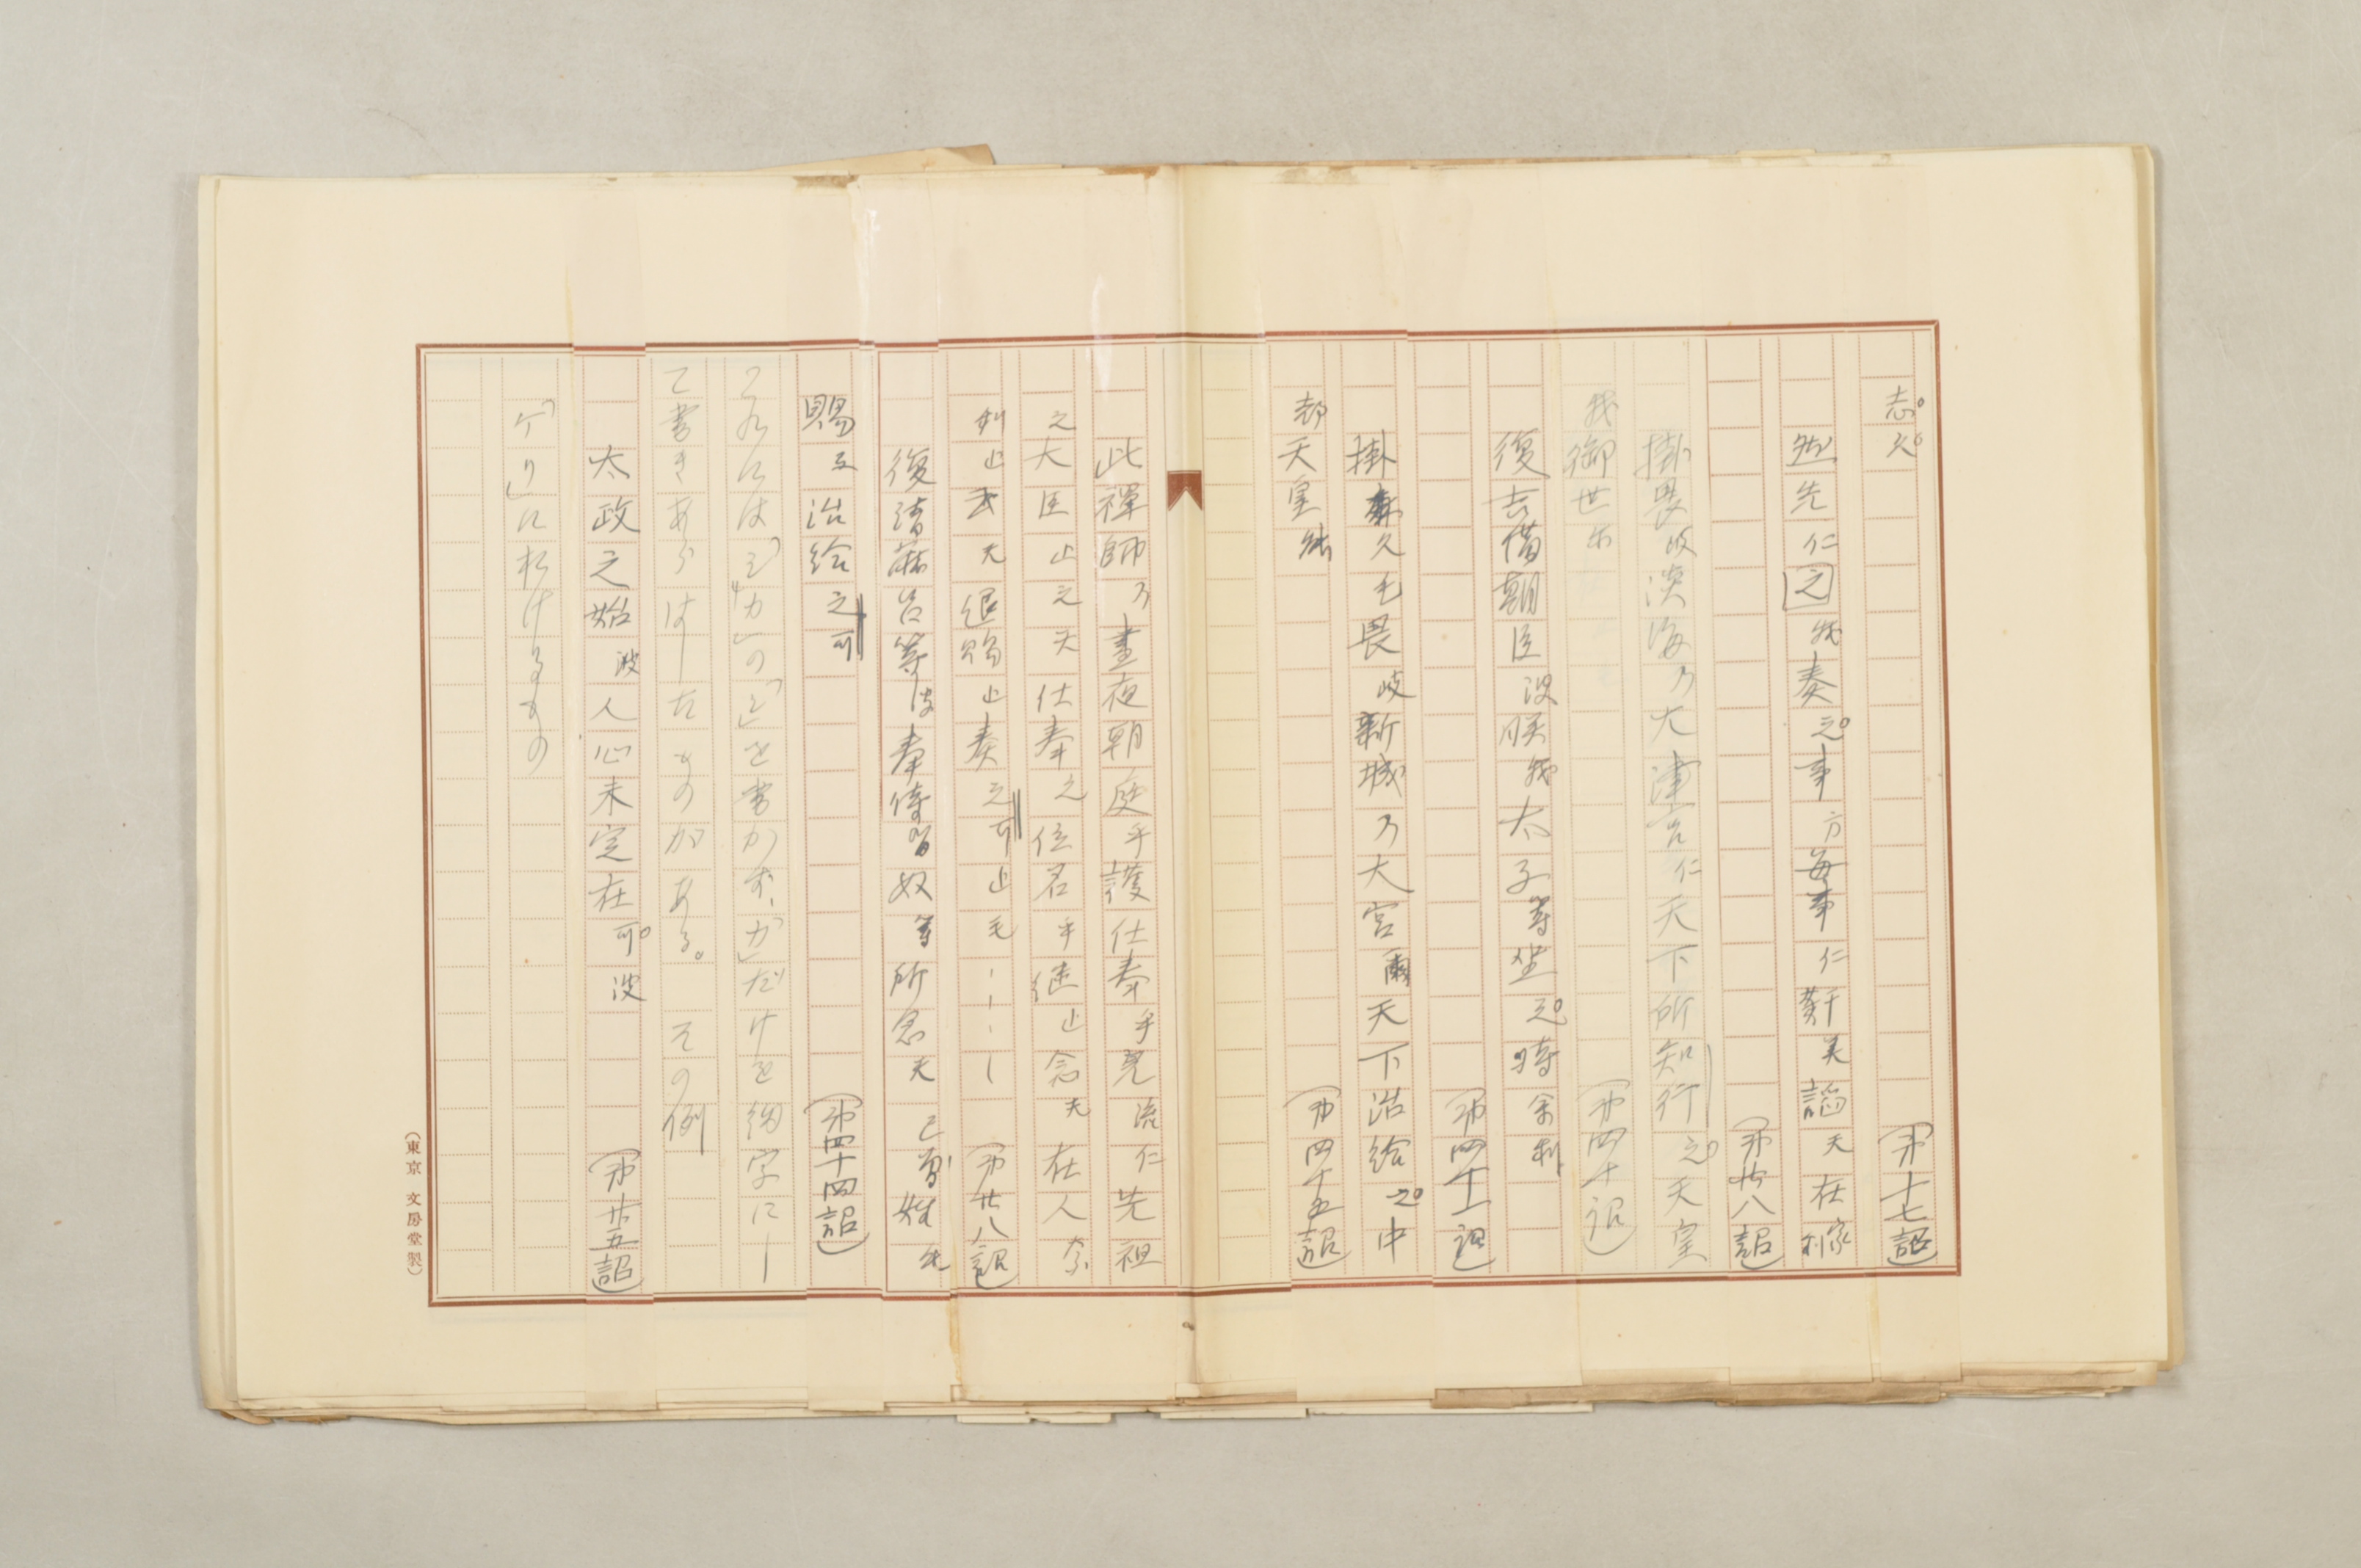 志久　（第十七詔）
然先仁之我奏之事方毎事仁諂天在家利
（第廿八詔）
掛畏岐淡海乃大津宮仁天下所知行之天皇
我御世尓　（第四十詔）
復吉備朝臣波朕我太子等坐之時余利
（第四十一詔）
掛毛畏岐新城乃大宮爾天下治給之中
都天皇能　（第四十五詔）
此禅師乃昼夜朝庭乎護仕奉乎見流仁先祖
之大臣止之天仕奉之位名乎継止念天在人奈
利止云天退賜止奏之可止毛────　（第廿八詔）
復清麻呂等波奉侍留奴等所念天己曽姓毛
賜弖治給之可　（第四十四詔）
これには「シカ」の「シ」を書かず、「カ」だけを細字にし
て書きあらはしたものがある。その例
太政之始波人心未定在可波　（第廿五詔）
「ケリ」に於けるもの
（東京　文房堂製）